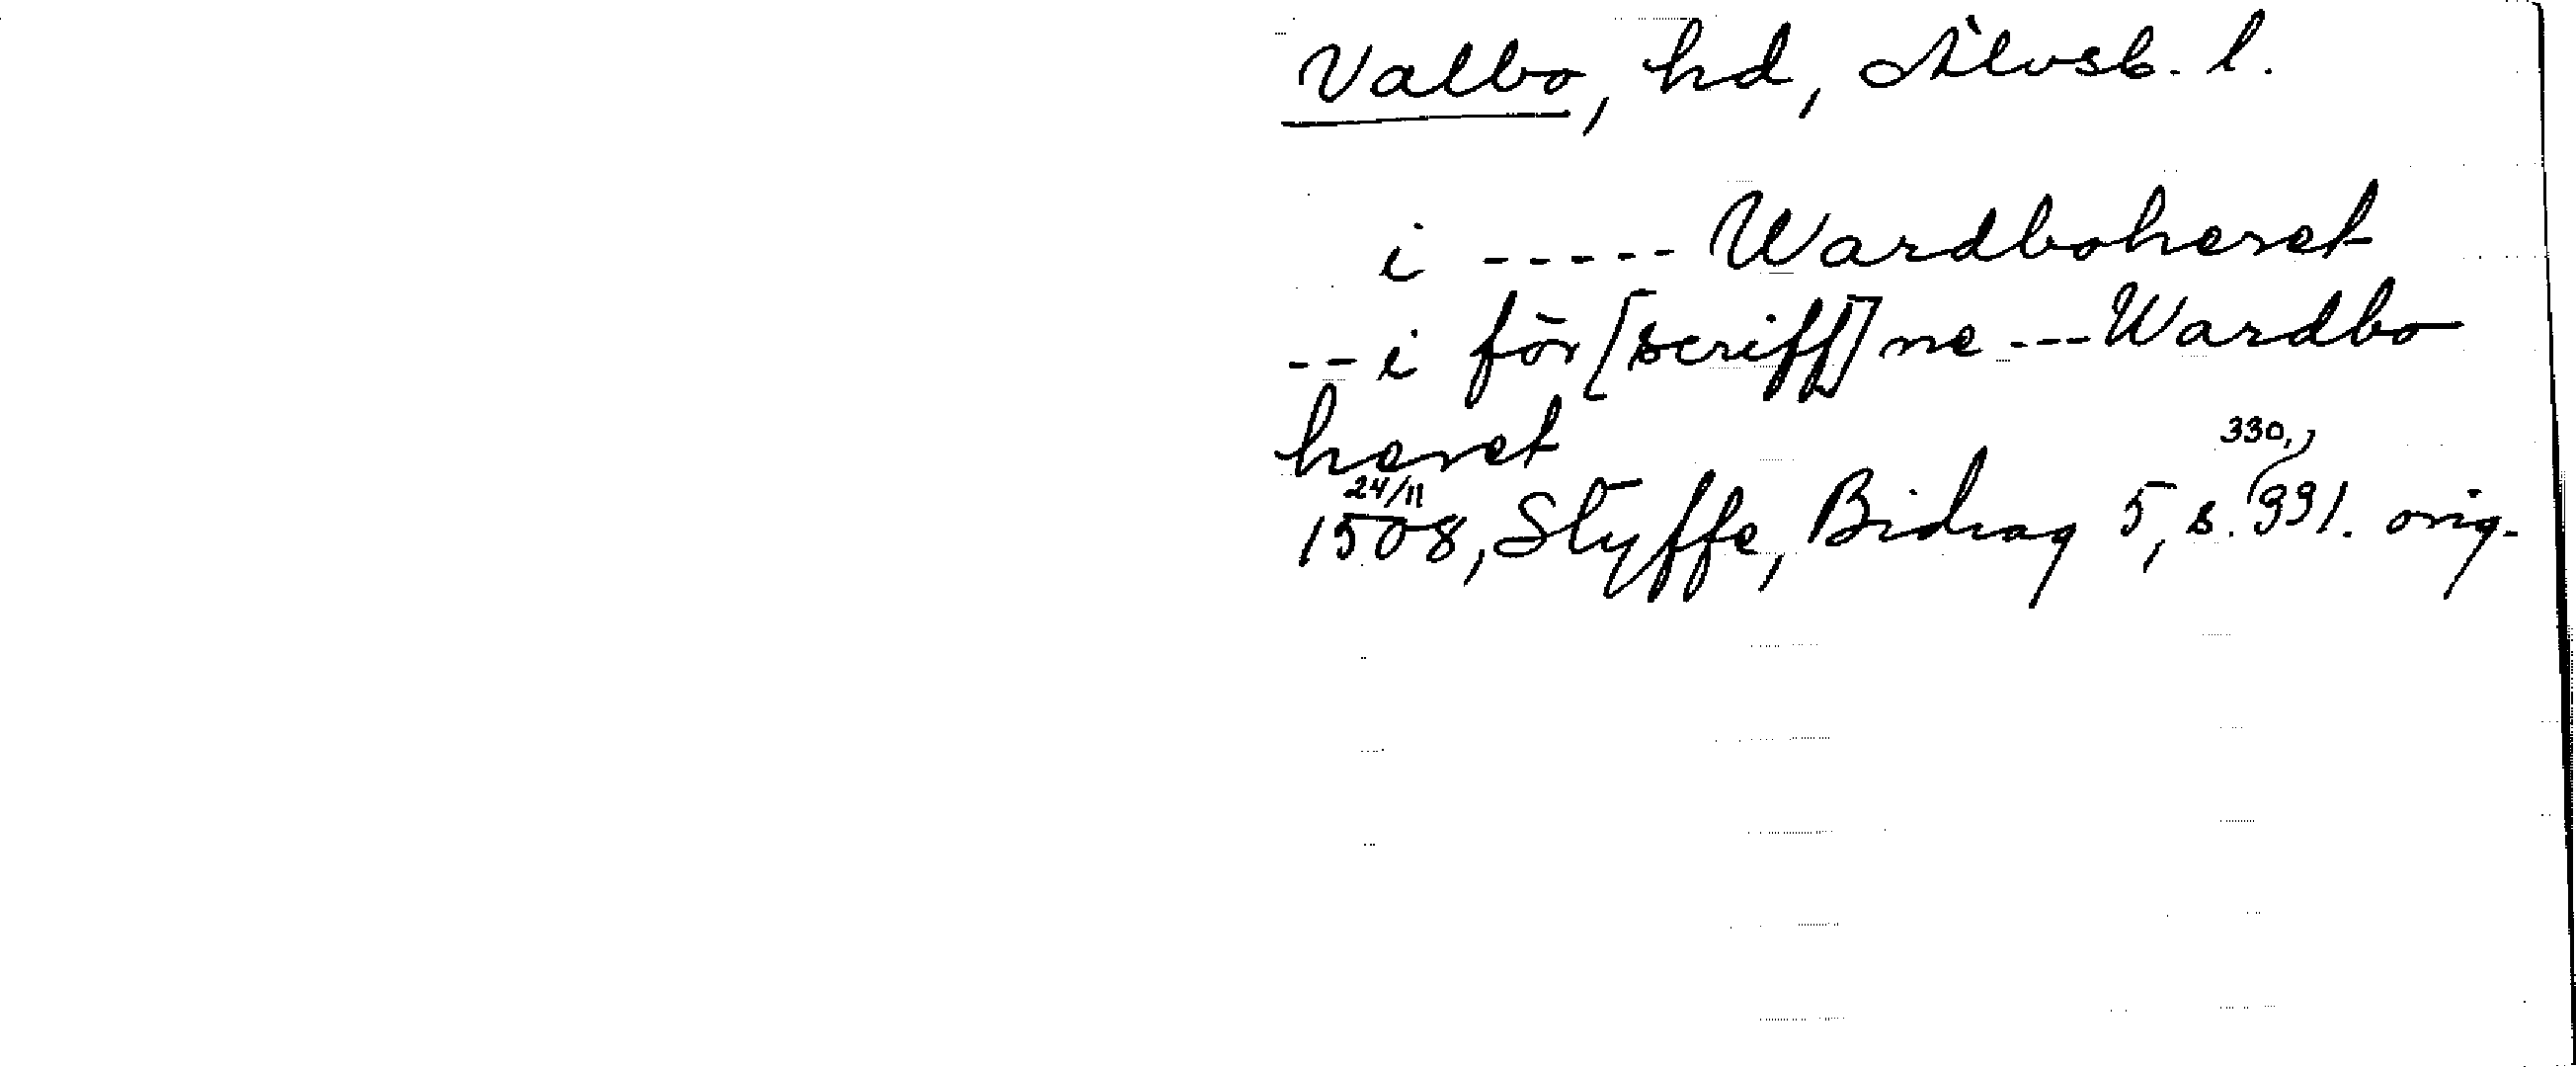 Valbo, hd, Älvsb. l.
i ----- Wardboheret
-- i för[scriff]ne --- Wardbo
heret
24/11 330,
1508, Styffe, Bidrag 5, s. 331. orig.